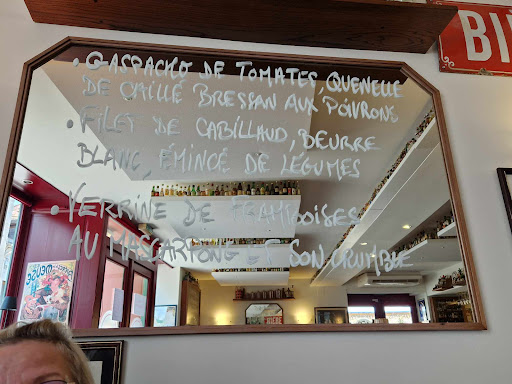 BI
• GASPACHO DE TOMATES, QUENELLE
DE CAILLÉ BRESSAN AUX POIVRONS
• FILET DE CABILLAUD, BEURRE
BLANC, ÉMINCÉ DE LÉGUMES
• VERRINE DE FRAMBOISES
AU MASCARPONE ET SON CRUMBLE
MEUSE